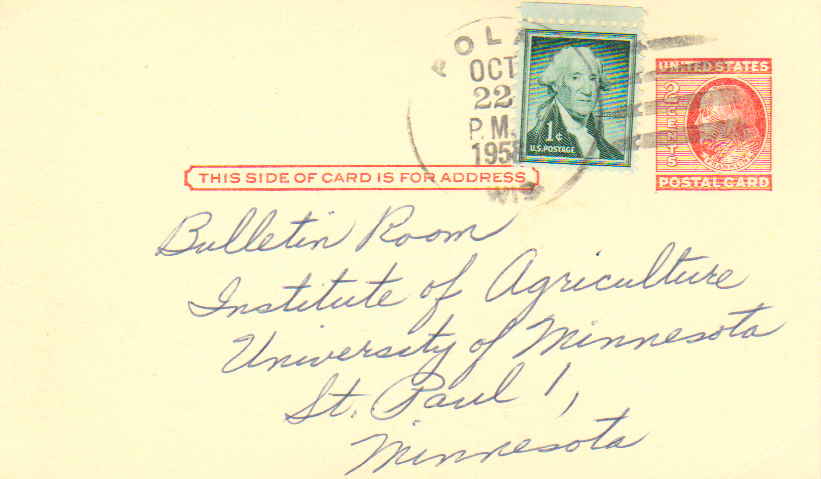 POLA
OCT
22
P.M.
1958
WIS
1¢
U.S. POSTAGE
UNITED STATES
2 CENTS
FRANKLIN
POSTAL CARD
THIS SIDE OF CARD IS FOR ADDRESS
Bulletin Room
Institute of Agriculture
University of Minnesota
St. Paul 1,
Minnesota